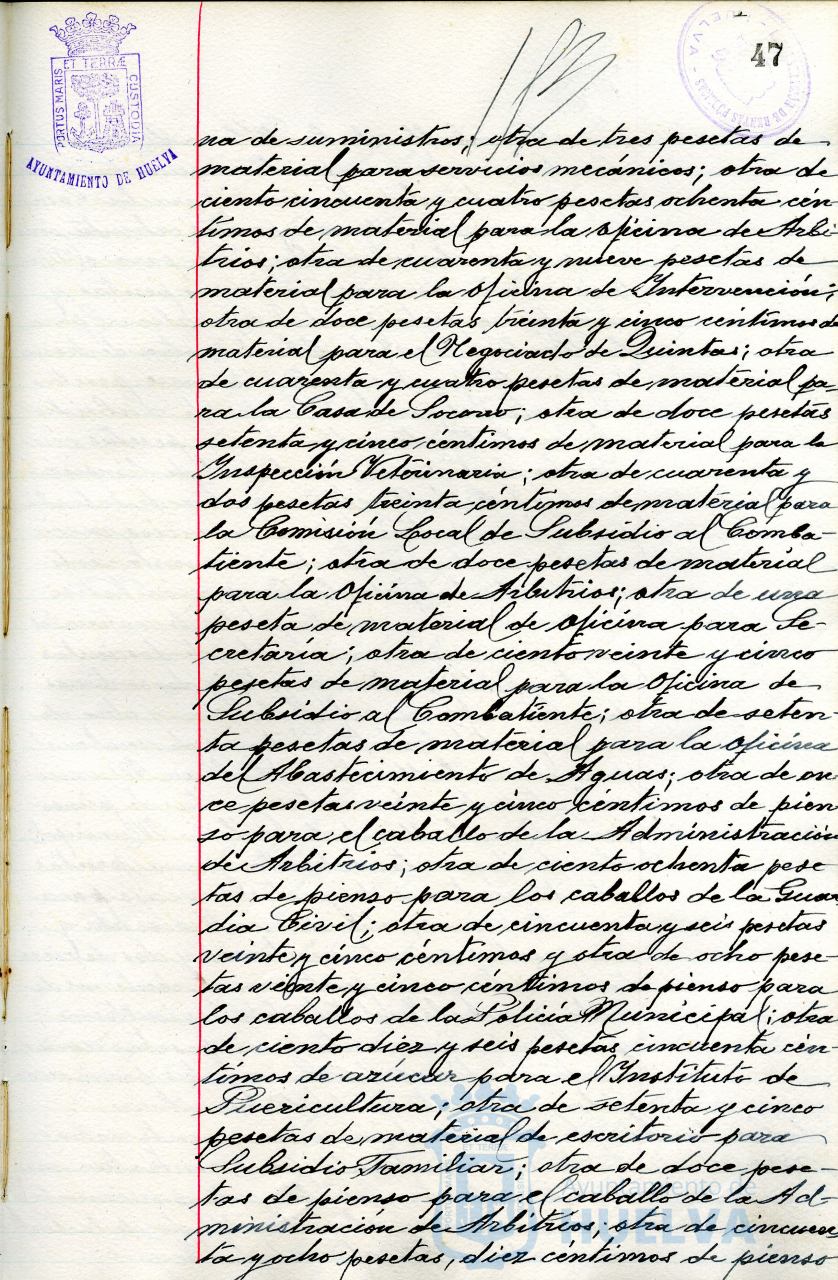 47
PORTUS MARIS ET TERRÆ CUSTODIA
AYUNTAMIENTO DE HUELVA
na de suministros; otra de tres pesetas de
material para servicios mecánicos; otra de
ciento cincuenta y cuatro pesetas ochenta cén-
timos de material para la oficina de Arbi-
trios; otra de cuarenta y nueve pesetas de
material para la Oficina de Intervención;
otra de doce pesetas treinta y cinco céntimos de
material para el Negociado de Quintas; otra
de cuarenta y cuatro pesetas de material pa-
ra la Casa de Socorro; otra de doce pesetas
setenta y cinco céntimos de material para la
Inspección Veterinaria; otra de cuarenta y
dos pesetas treinta céntimos de material para
la Comisión Local de Subsidio al Comba-
tiente; otra de doce pesetas de material
para la Oficina de Arbitrios; otra de una
peseta de material de oficina para Se-
cretaría; otra de ciento veinte y cinco
pesetas de material para la Oficina de
Subsidio al Combatiente; otra de seten-
ta pesetas de material para la oficina
del Abastecimiento de Aguas; otra de on-
ce pesetas veinte y cinco céntimos de pien-
so para el caballo de la Administración
de Arbitrios; otra de ciento ochenta pese
tas de pienso para los caballos de la Guar
dia Civil; otra de cincuenta y seis pesetas
veinte y cinco céntimos y otra de ocho pese-
tas veinte y cinco céntimos de pienso para
los caballos de la Policía Municipal; otra
de ciento diez y seis pesetas cincuenta cén-
timos de azúcar para el Instituto de
Puericultura; otra de setenta y cinco
pesetas de material de escritorio para
Subsidio Familiar; otra de doce pese-
tas de pienso para el caballo de la Ad-
ministración de Arbitrios; otra de cincuen
ta y ocho pesetas, diez céntimos de pienso
Ayuntamiento de
HUELVA